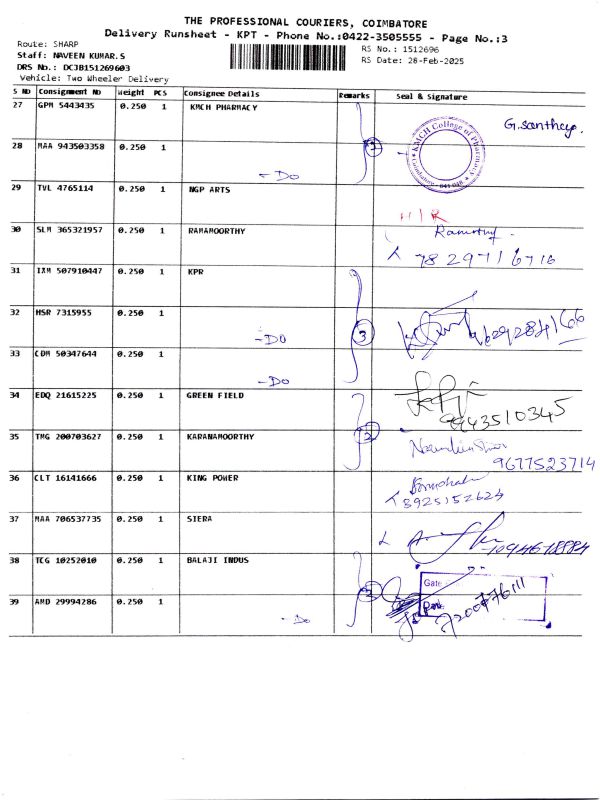 THE PROFESSIONAL COURIERS, COIMBATORE
Delivery Runsheet - KPT - Phone No.:0422-3505555 - Page No.:3
Route: SHARP
RS No.: 1512696
Staff: NAVEEN KUMAR.S
RS Date: 28-Feb-2025
DRS No.: DCJB151269603
Vehicle: Two Wheeler Delivery
S NO Consignment No Weight PCS Consignee Details Remarks Seal & Signature
27 GPM 5443435 0.250 1 KMCH PHARMACY
KMCH College of Pharmacy
Coimbatore - 641 048
28 MAA 943503358 0.250 1
- Do
29 TVL 4765114 0.250 1 NGP ARTS
30 SLM 365321957 0.250 1 RAMAMOORTHY
78 297 1 6716
31 IXM 507910447 0.250 1 KPR
32 HSR 7315955 0.250 1
- DO 3
9629284166
33 CDM 50347644 0.250 1
- DO
34 EDQ 21615225 0.250 1 GREEN FIELD
9443510345
35 TMG 200703627 0.250 1 KARANAMOORTHY 2
9677523714
36 CLT 16141666 0.250 1 KING POWER
8925152624
37 MAA 706537735 0.250 1 SIERA
38 TCG 10252010 0.250 1 BALAJI INDUS
Gate
39 AMD 29994286 0.250 1
- Do